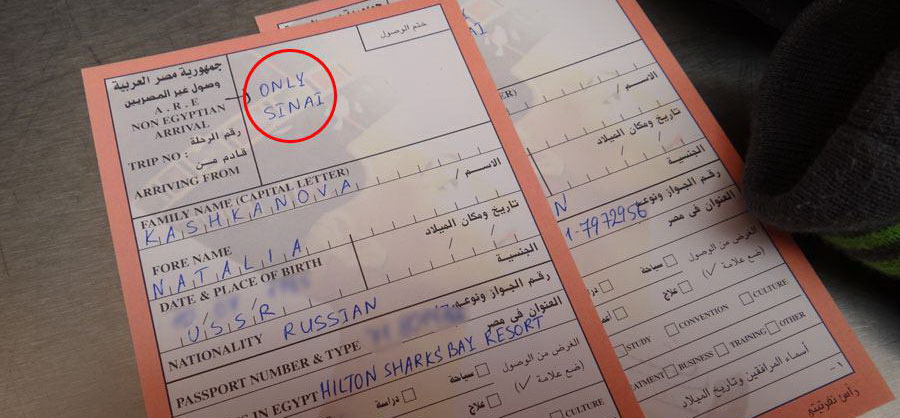 ختم الوصول
جمهورية مصر العربية
وصول غير المصريين
A.R.E
NON EGYPTIAN
ARRIVAL
رقم الرحلة
TRIP NO :
قادم من
ARRIVING FROM
ONLY
SINAI
FAMILY NAME (CAPITAL LETTER)
KASHKANOVA
الاسم /
FORE NAME
NATALIA
DATE & PLACE OF BIRTH
تاريخ ومكان الميلاد
USSR
/ /
NATIONALITY RUSSIAN
الجنسية
PASSPORT NUMBER & TYPE
رقم الجواز ونوعه
IN EGYPT HILTON SHARKS BAY RESORT
العنوان في مصر
الغرض من الوصول
(ضع علامة ✓)
سياحة
دراسة
علاج
الاسم /
تاريخ ومكان الميلاد
/ /
الجنسية
رقم الجواز ونوعه
1-7972956
العنوان في مصر
الغرض من الوصول
(ضع علامة ✓)
سياحة
علاج
STUDY
CONVENTION
CULTURE
BUSINESS
TRAINING
OTHER
أسماء المرافقين وتاريخ الميلاد
١-
رأس نفرتيتي